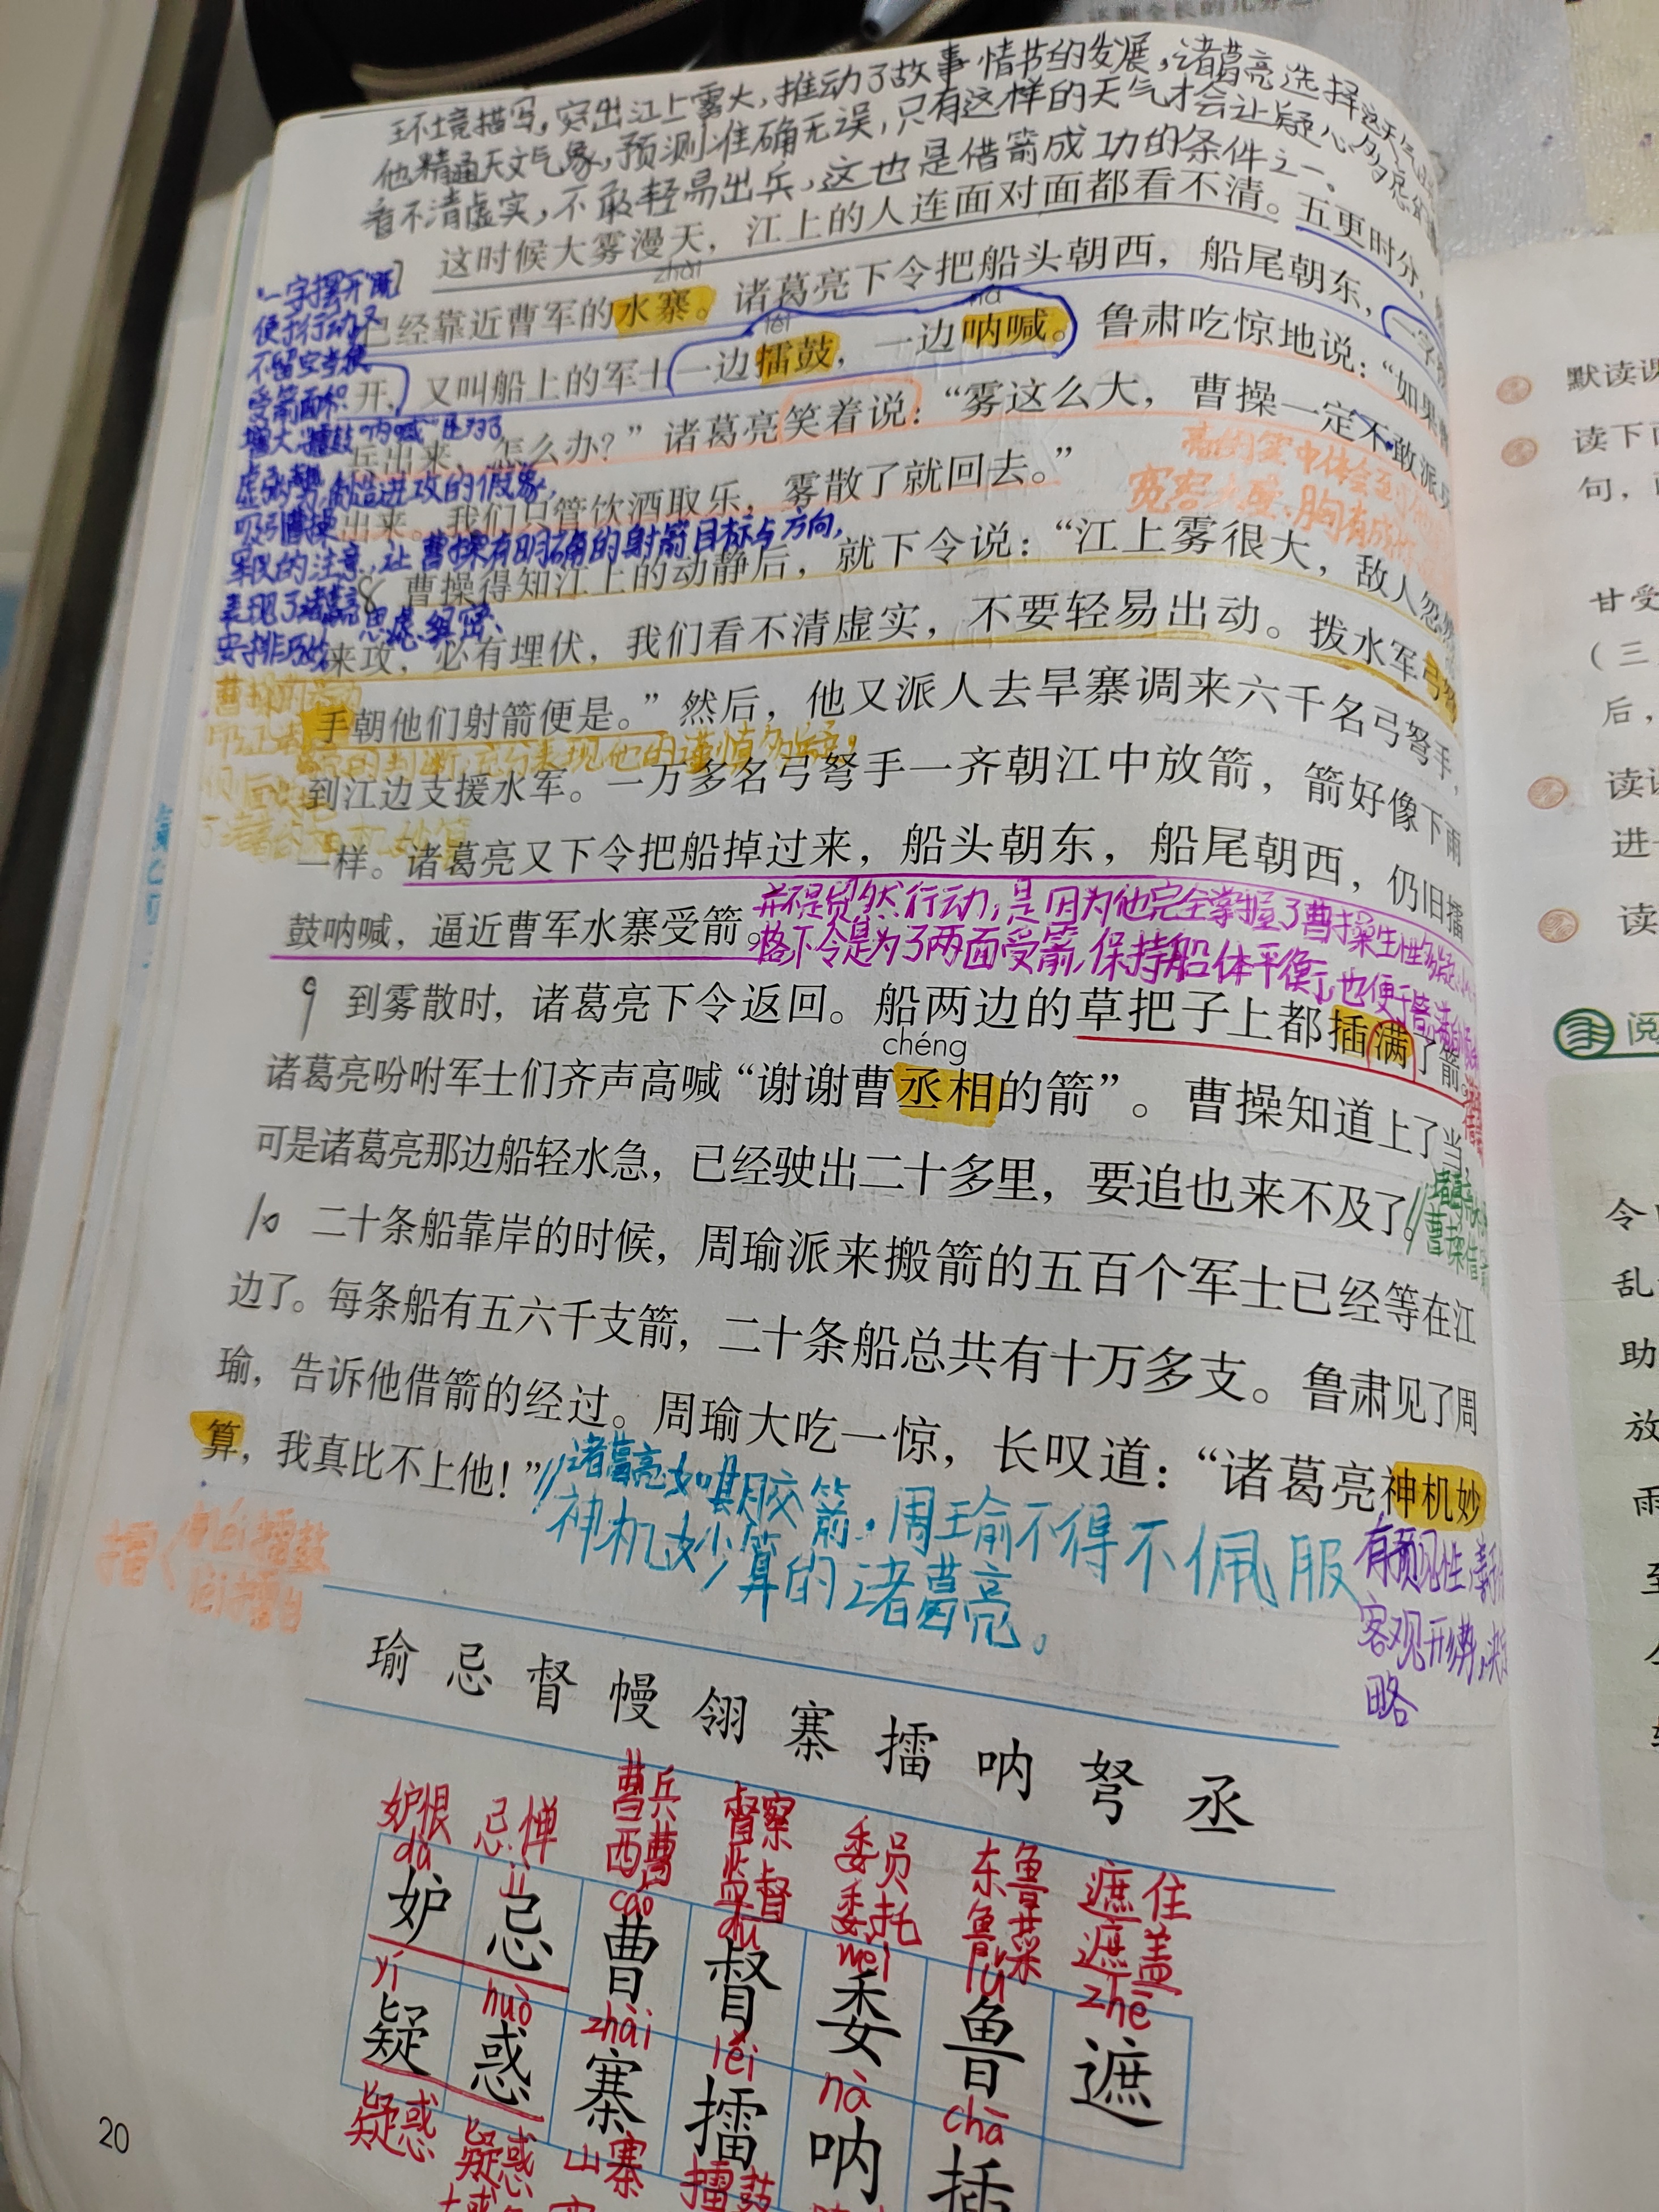 环境描写,突出江上雾大,推动了故事情节的发展,诸葛亮选择这天
他精通天文气象,预测准确无误,只有这样的天气才会让疑心多
看不清虚实,不敢轻易出兵,这也是借箭成功的条件之一。
这时候大雾漫天，江上的人连面对面都看不清。五更时分，
zhài
已经靠近曹军的水寨。诸葛亮下令把船头朝西，船尾朝东，一字
léi
nà
开，又叫船上的军士一边擂鼓，一边呐喊。鲁肃吃惊地说：“如果
兵出来，怎么办？”诸葛亮笑着说：“雾这么大，曹操一定不敢派
出来。我们只管饮酒取乐，雾散了就回去。”
“一字摆开”既
便于行动又
不留空当使
受箭面积
增大,"擂鼓""呐喊"是为了
虚张声势,制造进攻的假象,
吸引曹操
军队的注意,让曹操有明确的射箭目标与方向,
表现了诸葛亮思虑缜密、
安排巧妙
8 曹操得知江上的动静后，就下令说：“江上雾很大，敌人忽然
来攻，必有埋伏，我们看不清虚实，不要轻易出动。拨水军弓弩
手朝他们射箭便是。”然后，他又派人去旱寨调来六千名弓弩手，
到江边支援水军。一万多名弓弩手一齐朝江中放箭，箭好像下雨
一样。诸葛亮又下令把船掉过来，船头朝东，船尾朝西，仍旧擂
鼓呐喊，逼近曹军水寨受箭。
并不是贸然行动,是因为他完全掌握了曹操生性多疑
下令是为了两面受箭,保持船体平衡,也便于
9 到雾散时，诸葛亮下令返回。船两边的草把子上都插满了箭。
chéng
诸葛亮吩咐军士们齐声高喊“谢谢曹丞相的箭”。曹操知道上了当，
可是诸葛亮那边船轻水急，已经驶出二十多里，要追也来不及了。
10 二十条船靠岸的时候，周瑜派来搬箭的五百个军士已经等在江
边了。每条船有五六千支箭，二十条船总共有十万多支。鲁肃见了周
瑜，告诉他借箭的经过。周瑜大吃一惊，长叹道：“诸葛亮神机妙
算，我真比不上他！”
诸葛亮如期交箭,周瑜不得不佩服
神机妙算的诸葛亮。
有预见性,善于
客观形势,决
略
瑜 忌 督 幔 翎 寨 擂 呐 弩 丞
妒恨 忌惮 曹兵 督察 委员 东鲁 遮住
西曹 监督 委托 鲁菜 遮盖
dù jì cáo dū wěi lǔ zhē
妒 忌 曹 督 委 鲁 遮
yí huò zhài léi nà chā
疑 惑 寨 擂 呐 插
疑惑 疑惑 山寨 擂鼓
20
默读课
读下
句，
甘受
（三
后，
读
进
读
阅
令
乱
助
放
雨
至